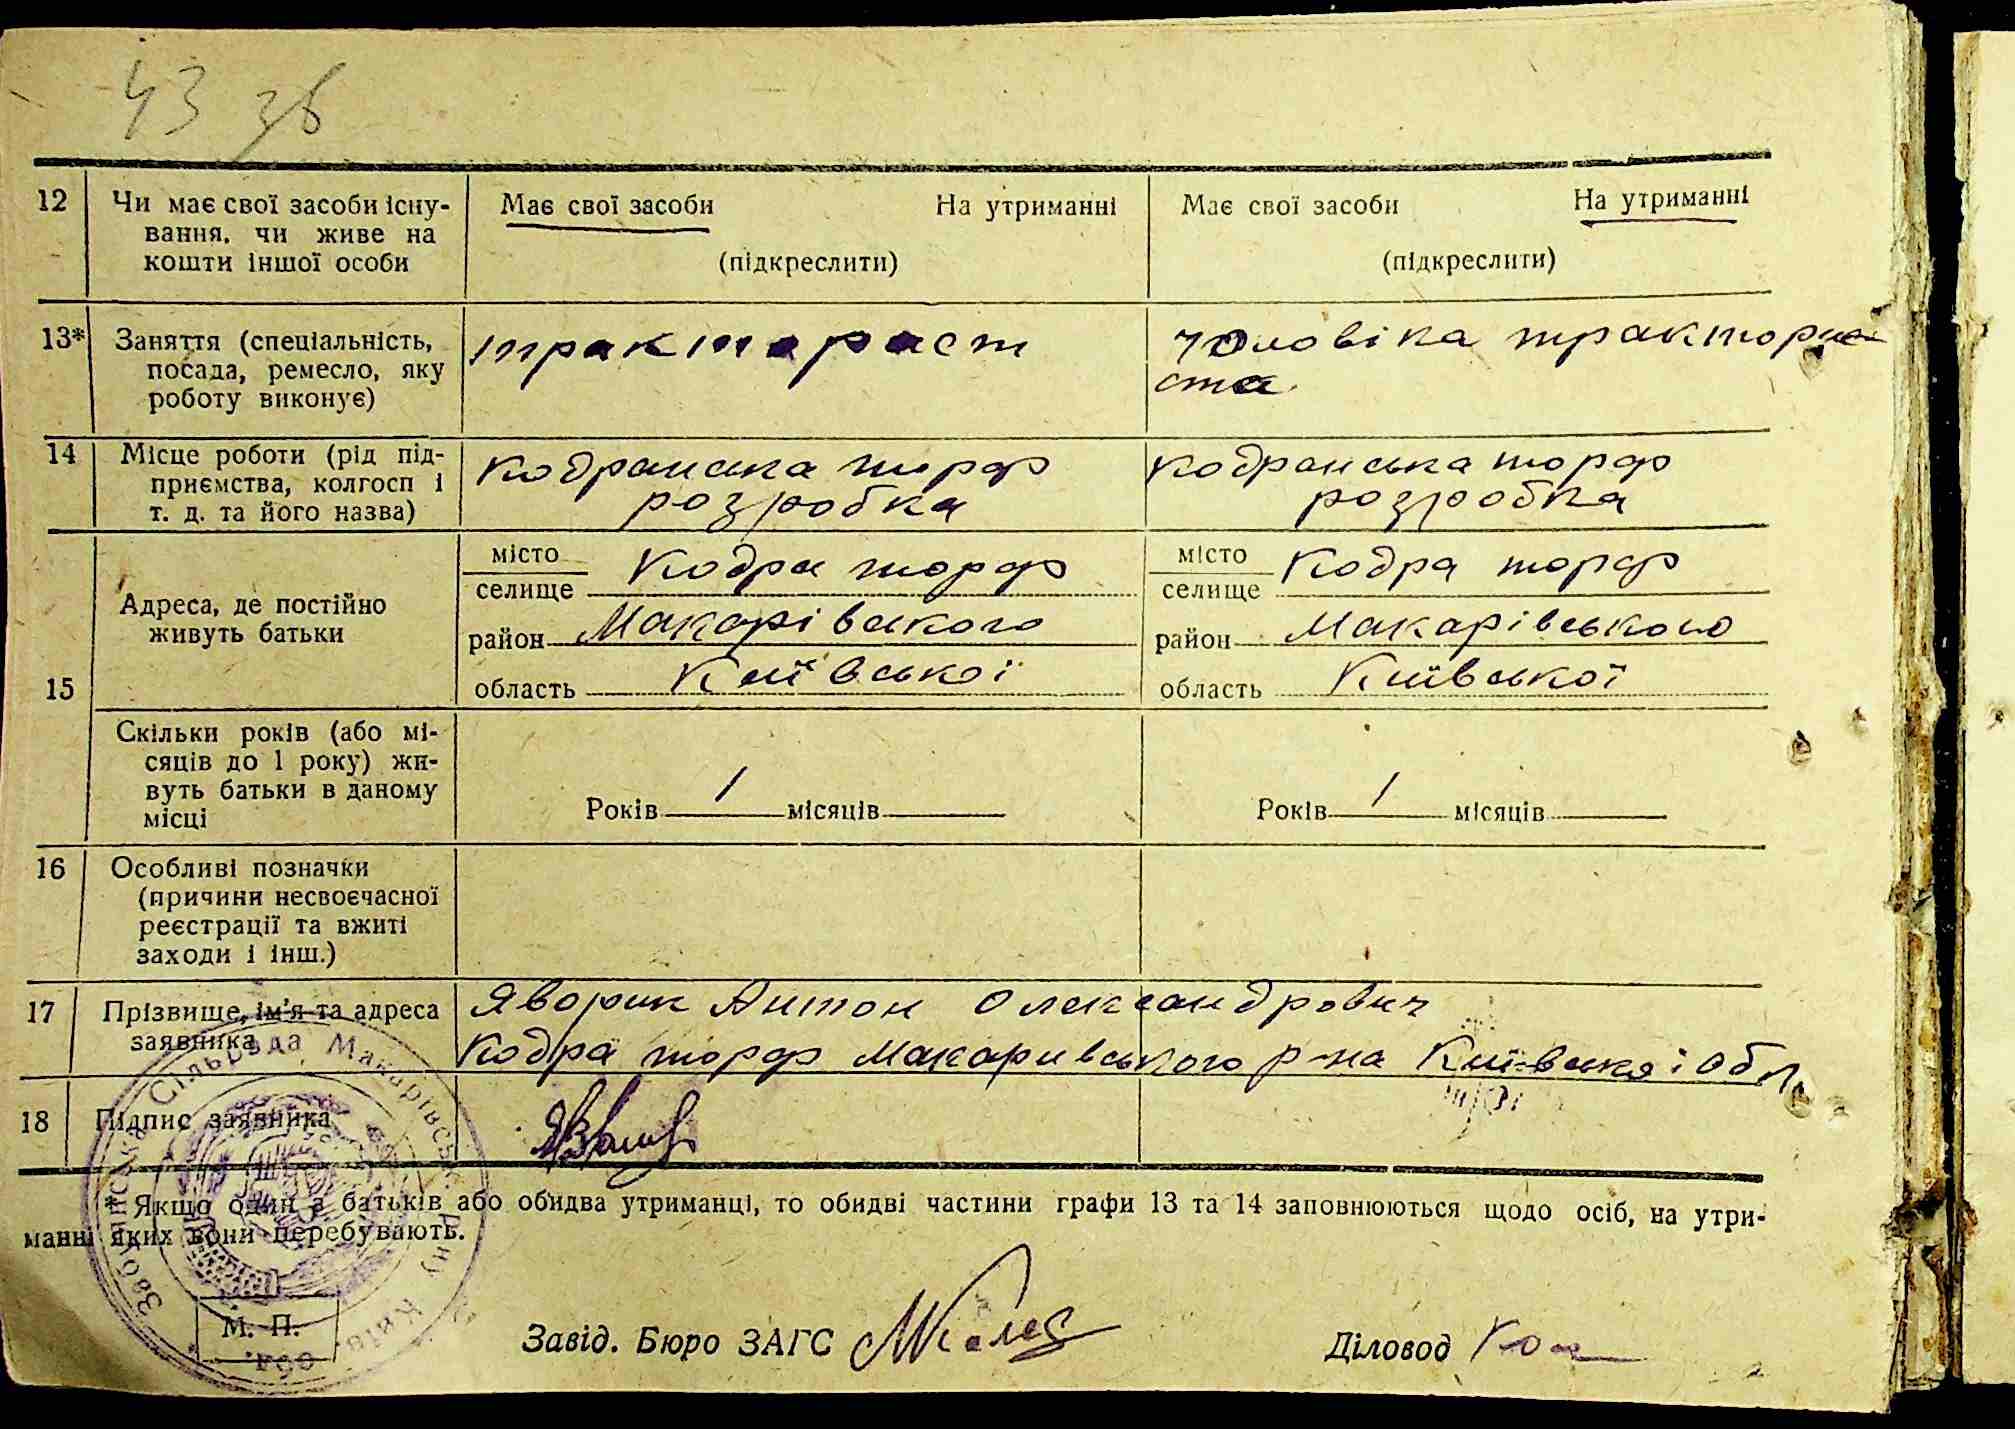 43 зв
12 Чи має свої засоби існу- Має свої засоби На утриманні Має свої засоби На утриманні
вання, чи живе на
кошти іншої особи (підкреслити) (підкреслити)
13* Заняття (спеціальність, трактораст чоловіка трактори
посада, ремесло, яку ста
роботу виконує)
14 Місце роботи (рід під- Кодранська торф Кодранська торф
приємства, колгосп і розробка розробка
т. д. та його назва)
15 Адреса, де постійно живуть батьки
місто Кодра торф місто Кодра торф
селище селище
район Макарівського район Макарівського
область Київської область Київської
Скільки років (або мі-
сяців до 1 року) жи-
вуть батьки в даному
місці Років 1 місяців Років 1 місяців
16 Особливі позначки
(причини несвоєчасної
реєстрації та вжиті
заходи і інш.)
17 Прізвище, ім'я та адреса Яворик Антон Олександрович
заявника Кодра торф Макаривського р-на Київської обл.
18 Підпис заявника
* Якщо один з батьків або обидва утриманці, то обидві частини графи 13 та 14 заповнюються щодо осіб, на утри-
манні яких вони перебувають.
М. П.
Завід. Бюро ЗАГС Діловод
Сільрада Макарівськ